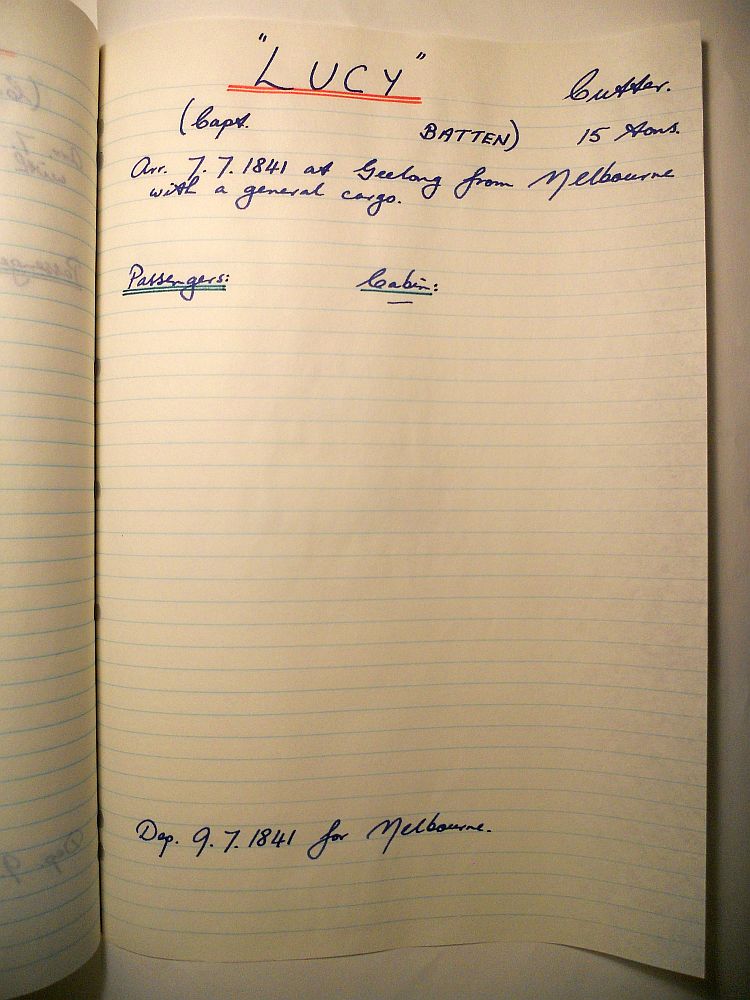 "LUCY"
Cutter.
(Capt. BATTEN) 15 tons.
Arr. 7.7.1841 at Geelong from Melbourne
with a general cargo.
Passengers: Cabin:
—
Dep. 9.7.1841 for Melbourne.